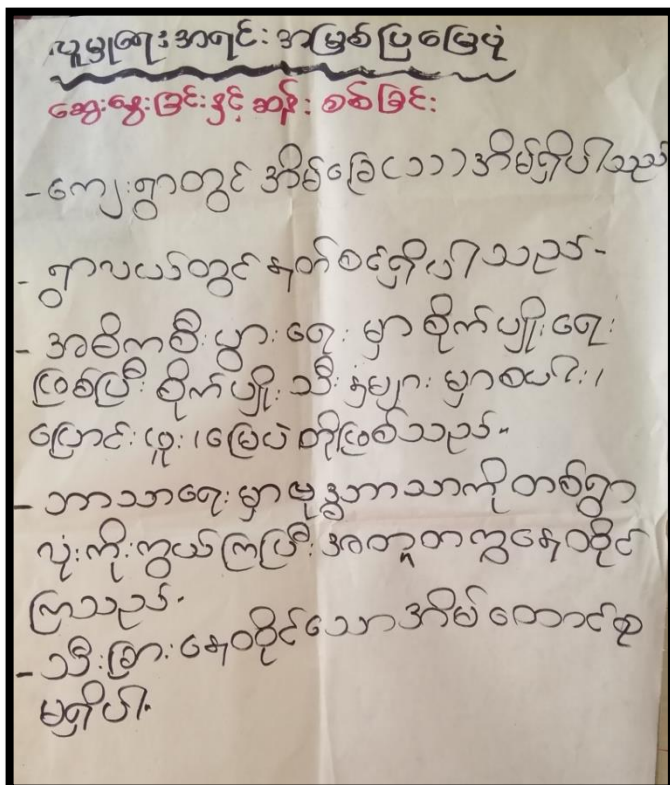 လူမှုရေးအရင်းအမြစ်ပြမြေပုံ
ဆွေးနွေးခြင်းနှင့် ဆန်းစစ်ခြင်း
- ကျေးရွာတွင် အိမ်ခြေ(၁၁)အိမ်ရှိပါသည်
- ရွာလယ်တွင် နတ်စင်ရှိပါသည်။
- အဓိကစီးပွားရေးမှာ စိုက်ပျိုးရေး
ဖြစ်ပြီး စိုက်ပျိုးသီးနှံများမှာစပါး၊
ပြောင်းဖူး၊မြေပဲ တို့ဖြစ်သည်။
- ဘာသာရေးမှာ ဗုဒ္ဓဘာသာကို တစ်ရွာ
လုံးကိုးကွယ်ကြပြီး အတူတကွနေထိုင်
ကြသည်။
- သီးခြားနေထိုင်သော အိမ်ထောင်စု
မရှိပါ။